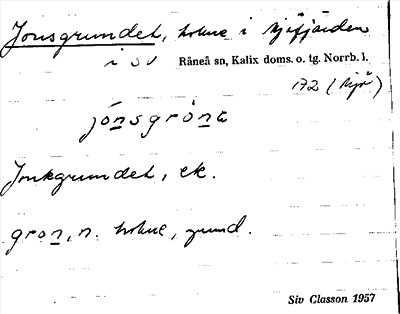 Jonsgrundet, holme i Mjöfjärden
i SV Råneå sn, Kalix doms. o. tg. Norrb. l.
172 (Mjö)
jónsgrònt
Jonkgrundet, ek.
gron, n. holme, grund.
Siv Classon 1957